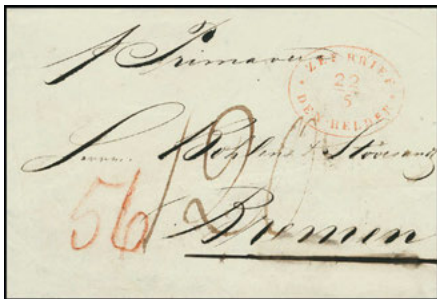 p Primavera
ZEE BRIEF
22
5
DEN HELDER
Herrn Bohlens & Stövesandt
56
120
Bremen